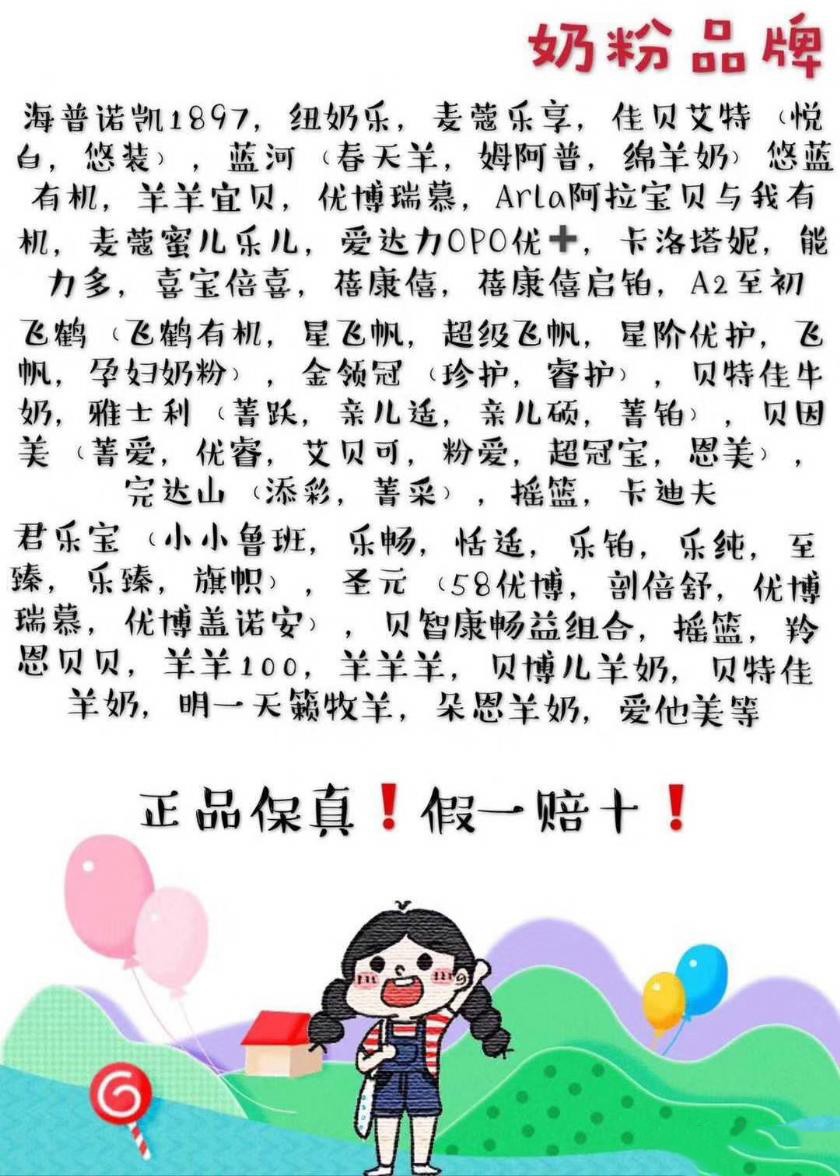 奶粉品牌
海普诺凯1897，纽奶乐，麦蔻乐享，佳贝艾特（悦
白，悠装），蓝河（春天羊，姆阿普，绵羊奶）悠蓝
有机，羊羊宜贝，优博瑞慕，Arla阿拉宝贝与我有
机，麦蔻蜜儿乐儿，爱达力OPO优➕，卡洛塔妮，能
力多，喜宝倍喜，蓓康僖，蓓康僖启铂，A2至初
飞鹤（飞鹤有机，星飞帆，超级飞帆，星阶优护，飞
帆，孕妇奶粉），金领冠（珍护，睿护），贝特佳牛
奶，雅士利（菁跃，亲儿适，亲儿硕，菁铂），贝因
美（菁爱，优睿，艾贝可，粉爱，超冠宝，恩美），
完达山（添彩，菁采），摇篮，卡迪夫
君乐宝（小小鲁班，乐畅，恬适，乐铂，乐纯，至
臻，乐臻，旗帜），圣元（58优博，剖倍舒，优博
瑞慕，优博盖诺安），贝智康畅益组合，摇篮，羚
恩贝贝，羊羊100，羊羊羊，贝博儿羊奶，贝特佳
羊奶，明一天籁牧羊，朵恩羊奶，爱他美等
正品保真❗假一赔十❗